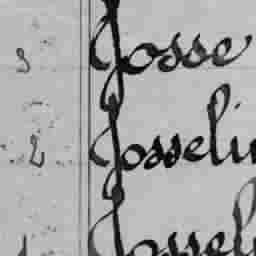 3 Josse
2 Josseli
Jossel